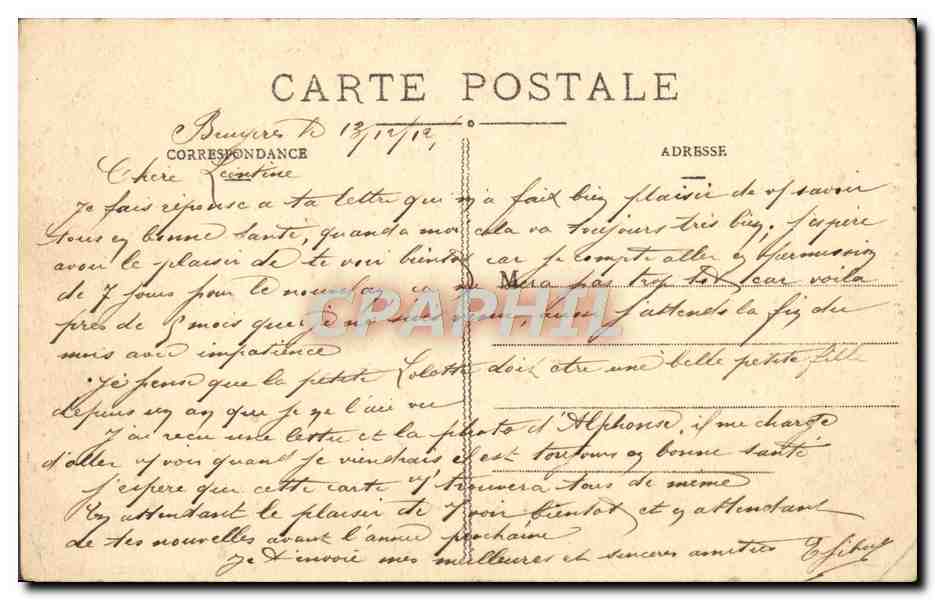 CARTE POSTALE
le 12/12/12,
CORRESPONDANCE
ADRESSE
Chère Léontine
Je fais réponse a ta lettre qui m'a faix bien plaisir de vs savoir
tous en bonne santé, quand a moi cela va toujours très bien. J'espère
avoir le plaisir de te voir bientot car je compte aller en permission
de 7 jours pour le nouvel an ça ne sera pas trop tot car voila
M
près de 8 mois que je ne suis venu, aussi j'attends la fin du
CPAPHIL
mois avec impatience
Je pense que la petite Lolotte doit être une belle petite fille
depuis un an que je ne l'aie vu
J'ai recu une lettre et la photo d'Alphonse, il me charge
d'aller vs voir quand je viendrais il est toujours en bonne santé
j'espere que cette carte vs trouvera tous de même
En attendant le plaisir de vs voir bientot et en attendant
de tes nouvelles avant l'année prochaine
Je t'envoie mes meilleures et sincères amitiés